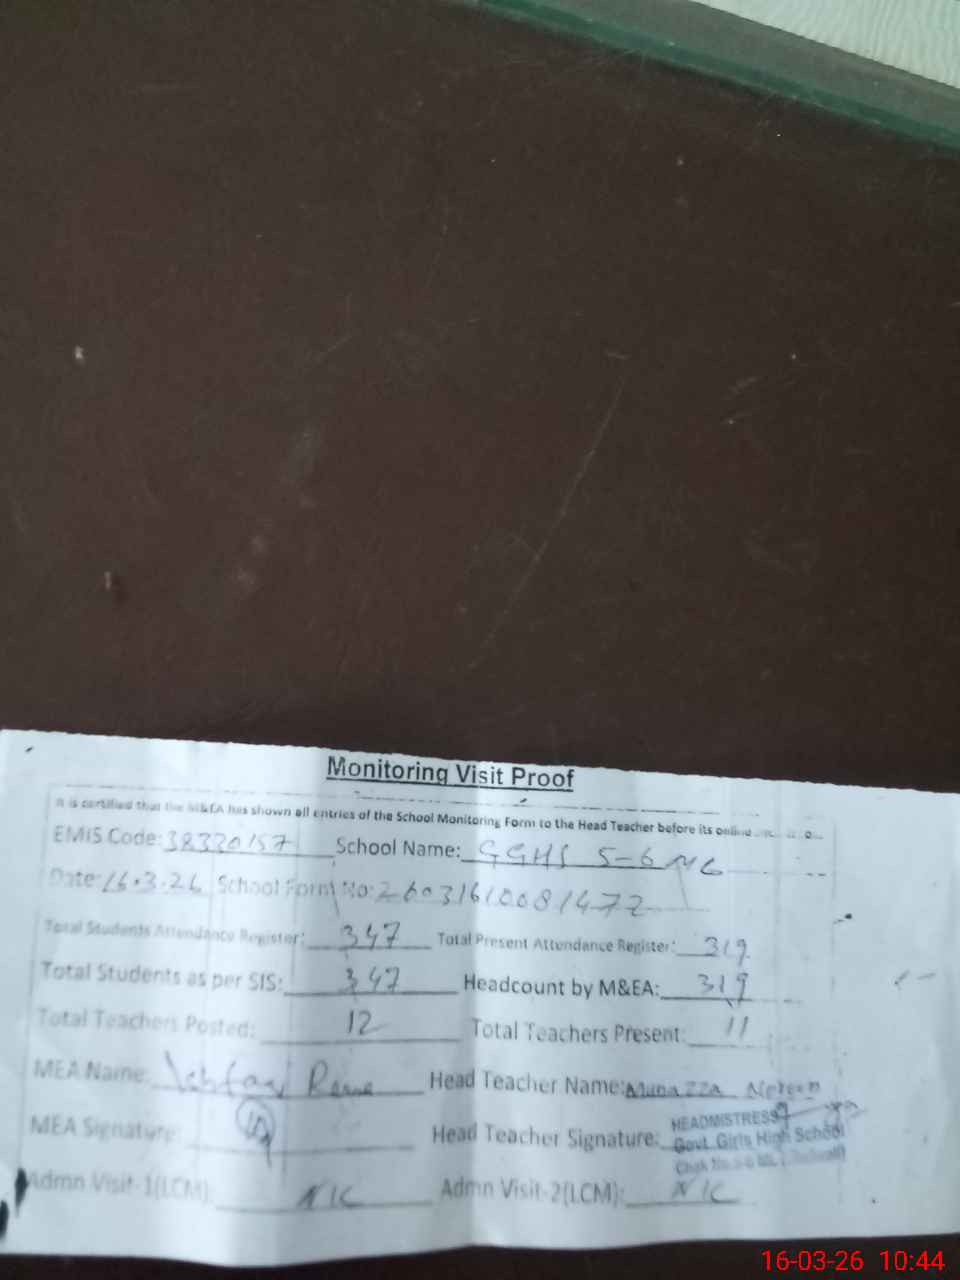 Monitoring Visit Proof
It is certified that the M&EA has shown all entries of the School Monitoring Form to the Head Teacher before its online
EMIS Code: 38320157 School Name: GGHS 5-6 MC
Date: 16.3.26 School Form No: 26031610081472
Total Students Attendance Register: 347 Total Present Attendance Register: 319
Total Students as per SIS: 347 Headcount by M&EA: 319
Total Teachers Posted: 12 Total Teachers Present: 11
MEA Name: Head Teacher Name: Munazza Noreen
MEA Signature: Head Teacher Signature:
HEADMISTRESS
Govt. Girls High School
Chak No. 5-6
Admn Visit-1(LCM): NIL Admn Visit-2(LCM): NIL
16-03-26 10:44